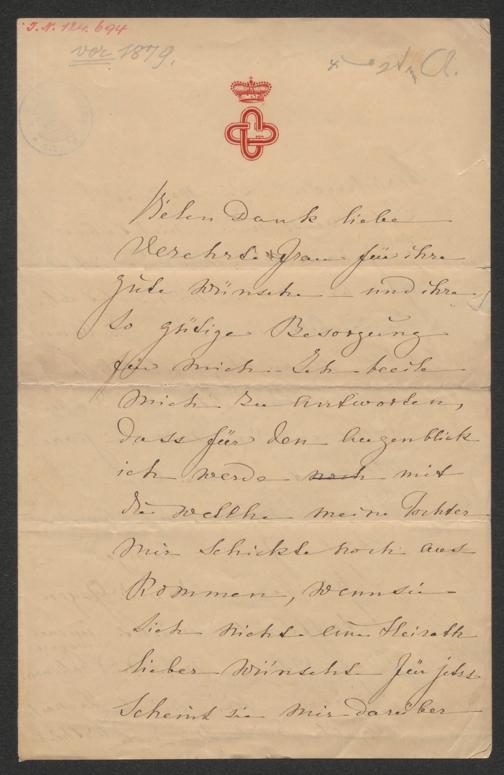 I.N. 124.694
vor 1879.
Vielen Dank liebe
Verehrte Frau für ihre
gute Wünsche und ihre
so gütige Besorgung
für mich. Ich beeile
mich zu antworten,
dass für den Augenblick
ich werde noch mit
die welche meine Tochter
mir schickte noch aus
kommen, wenn sie
sich nicht eine Heirath
lieber wünscht. Für jetzt
scheint sie mir darüber